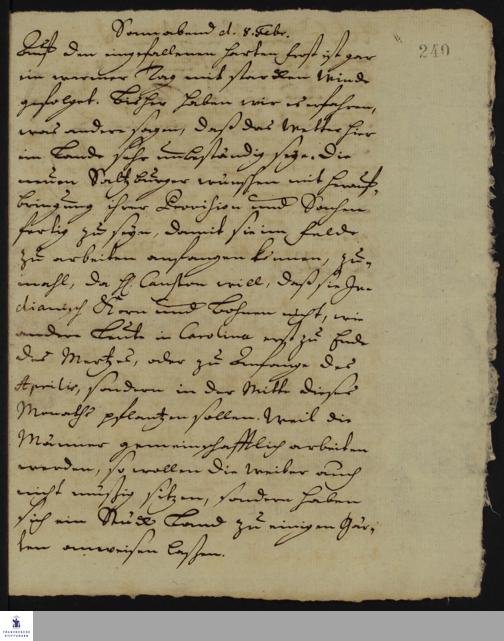 Sonnabend d. 8. Febr.
240
Auf den eingefallenen harten Frost ist gar
ein warmer Tag mit starcken Winde
gefolget. Bisher haben wir es erfahren,
was andere sagen, daß das Wetter hier
im Lande sehr unbeständig seye. Die
neuen Saltzburger wünschen mit herauf-
bringung ihrer Provision und Sachen
fertig zu seyn, damit sie im Felde
zu arbeiten anfangen können, zu-
mahl, da H. Causton will, daß sie In-
dianisch Korn und Bohnen nicht, wie
andere Leute in Carolina erst zu Ende
des Mertzes, oder zu Anfange des
Aprilis, sondern in der Mitte dieses
Monaths pflantzen sollen. Weil die
Männer gemeinschafftlich arbeiten
werden, so wollen die Weiber auch
nicht müßig sitzen, sondern haben
sich ein Stück Land zu einigen Gär-
ten anweisen laßen.
FRANCKESCHE
STIFTUNGEN